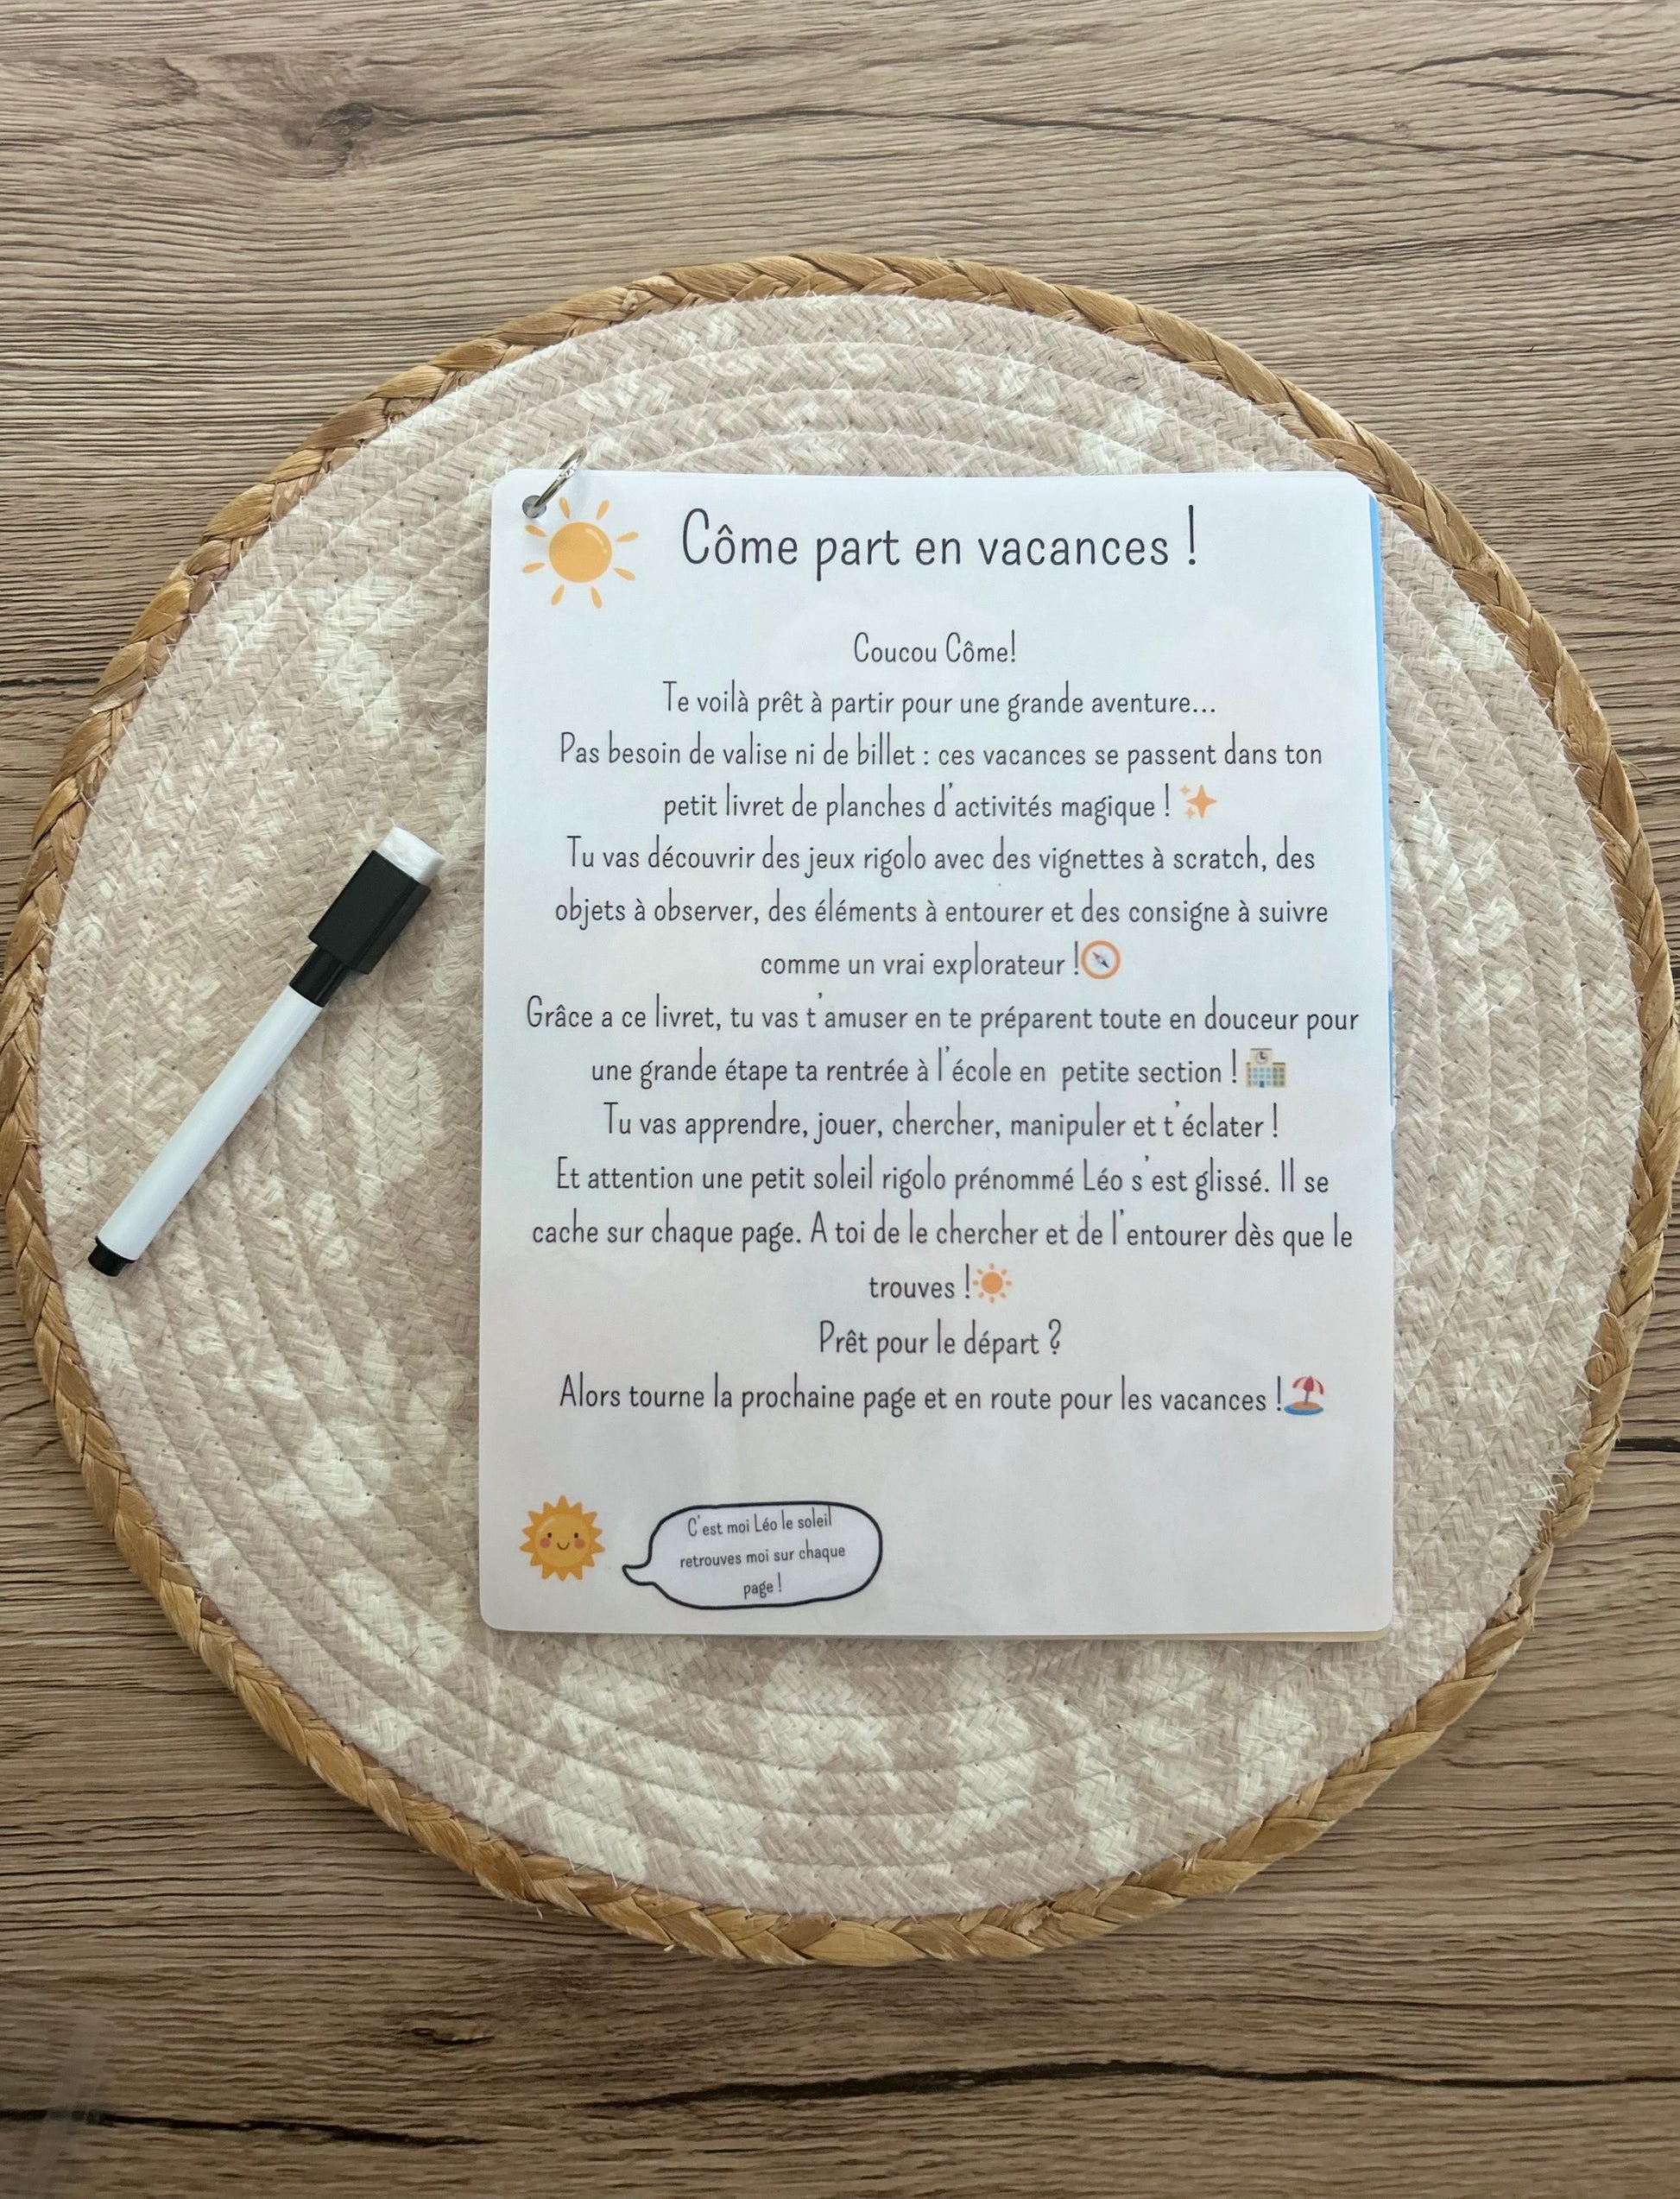 Côme part en vacances !
Coucou Côme!
Te voilà prêt à partir pour une grande aventure...
Pas besoin de valise ni de billet : ces vacances se passent dans ton
petit livret de planches d'activités magique ! ✨
Tu vas découvrir des jeux rigolo avec des vignettes à scratch, des
objets à observer, des éléments à entourer et des consigne à suivre
comme un vrai explorateur !🧭
Grâce a ce livret, tu vas t'amuser en te préparent toute en douceur pour
une grande étape ta rentrée à l'école en petite section ! 🏫
Tu vas apprendre, jouer, chercher, manipuler et t'éclater !
Et attention une petit soleil rigolo prénommé Léo s'est glissé. Il se
cache sur chaque page. A toi de le chercher et de l'entourer dès que le
trouves !☀️
Prêt pour le départ ?
Alors tourne la prochaine page et en route pour les vacances !🏖️
C'est moi Léo le soleil
retrouves moi sur chaque
page !